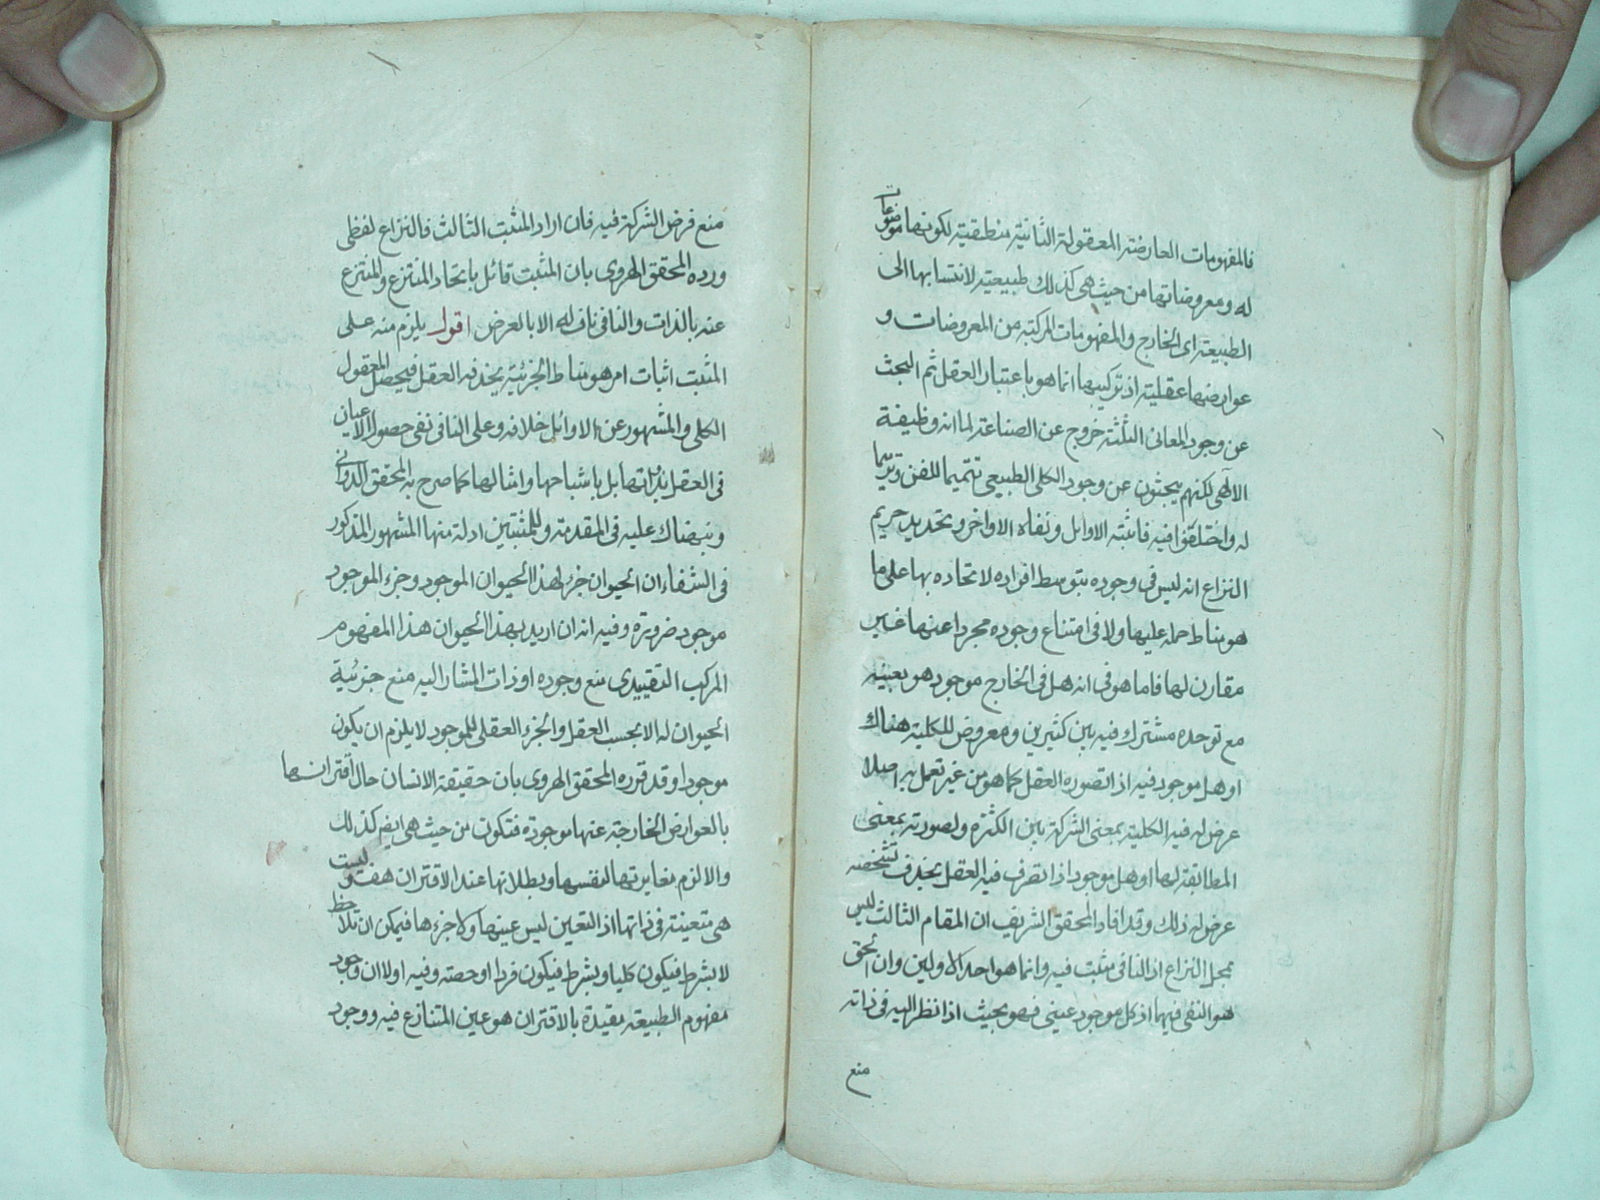 فالمفهومات العارضة المعقولة الثانية منطقية لكونها موضوعات
له ومعروضاتها من حيث هي كذلك طبيعية لانتسابها الى
الطبيعة اى الخارج والمفهومات المركبة من المعروضات و
عوارضها عقلية اذ تركيبها انما هو باعتبار العقل ثم البحث
عن وجود المعانى الثلثة خروج عن الصناعة لما انه وظيفة
الالهى لكنهم يبحثون عن وجود الكلى الطبيعى تتميما للفن
له واختلفوا فيه فاثبته الاوايل ونفاه الاواخر وتحديد حريم
النزاع انه ليس فى وجوده بتوسط افراده لاتحاده بها على ما
هو مناط حمله عليها ولا فى امتناع وجوده مجردا عنها غير
مقارن لها فاما هو فى انه هل فى الخارج موجود هو بعينه
مع توحده مشترك فيه بين كثيرين ومعروض للكلية هناك
او هل موجود فيه اذا تصوره العقل كما هو من غير تعمل به اصلا
عرض له فيه الكلية بمعنى الشركة بين الكثرة ولصورته بمعنى
المطابقة لها او هل موجود اذا تصرف فيه العقل بحذف تشخصه
عرض له ذلك وقد افاد المحقق الشريف ان المقام الثالث ليس
محل النزاع اذ النافى مثبت فيه وانما هو احد الاولين وان الحق
هو النفى فيهما اذ كل موجود عينى فهو بحيث اذا نظر اليه فى ذاته
منع
منع فرض الشركة فيه فان اراد المثبت الثالث فالنزاع لفظى
ورده المحقق الهروى بان المثبت قائل باتحاد المنتزع والمنتزع
عنه بالذات والنافى ناف له الا بالعرض اقول يلزم منه على
المثبت اثبات امر هو مناط الجزئية يحذفه العقل فيحصل المعقول
الكلى والمشهور عن الاوائل خلافه وعلى النافى نفى حصول الاعيان
فى العقل بذواتها بل باشباحها وامثالها كما صرح به المحقق الدوانى
ونبهناك عليه فى المقدمة وللمثبتين ادلة منها المشهور المذكور
فى الشفاء ان الحيوان جزء لهذا الحيوان الموجود وجزء الموجود
موجود ضرورة وفيه انه ان اريد بهذا الحيوان هذا المفهوم
المركب التقييدى منع وجوده او ذات المشار اليه منع جزئية
الحيوان له الا بحسب العقل والجزء العقلى للموجود لا يلزم ان يكون
موجودا وقد قرره المحقق الهروى بان حقيقة الانسان حال اقترانها
بالعوارض الخارجة عنها موجودة فتكون من حيث هى ايضا كذلك
والا لزم مغايرتها لنفسها وبطلانها عند الاقتران هف وليست
هى متعينة فى ذاتها اذ التعين ليس عينها ولا جزءها فيمكن ان تلاحظ
لا بشرط فيكون كليا وبشرط فيكون فردا او حصة وفيه اولا ان وجود
مفهوم الطبيعة مقيدة بالاقتران هو عين المتنازع فيه ووجود